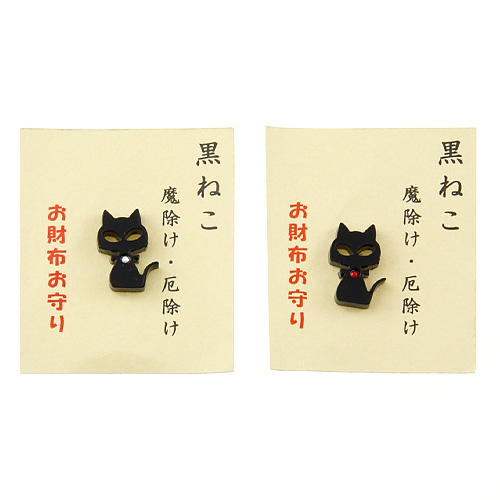 黒ねこ
魔除け・厄除け
お財布お守り
黒ねこ
魔除け・厄除け
お財布お守り